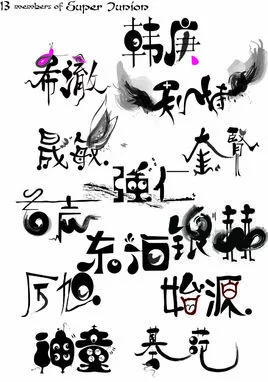 13 members of Super Junior
韩庚
希澈
利特
晟敏
奎賢
強仁
艺声
银赫
东海
厉旭
始源
神童
基范